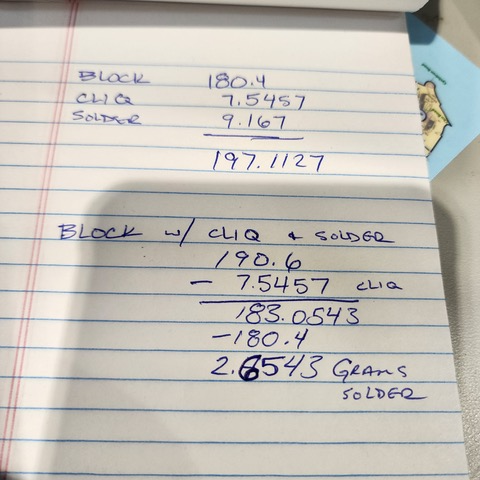 BLOCK 180.4
CLIQ 7.5457
SOLDER 9.167
197.1127
BLOCK w/ CLIQ + SOLDER
190.6
- 7.5457 CLIQ
183.0543
-180.4
2.6543 GRAMS
SOLDER